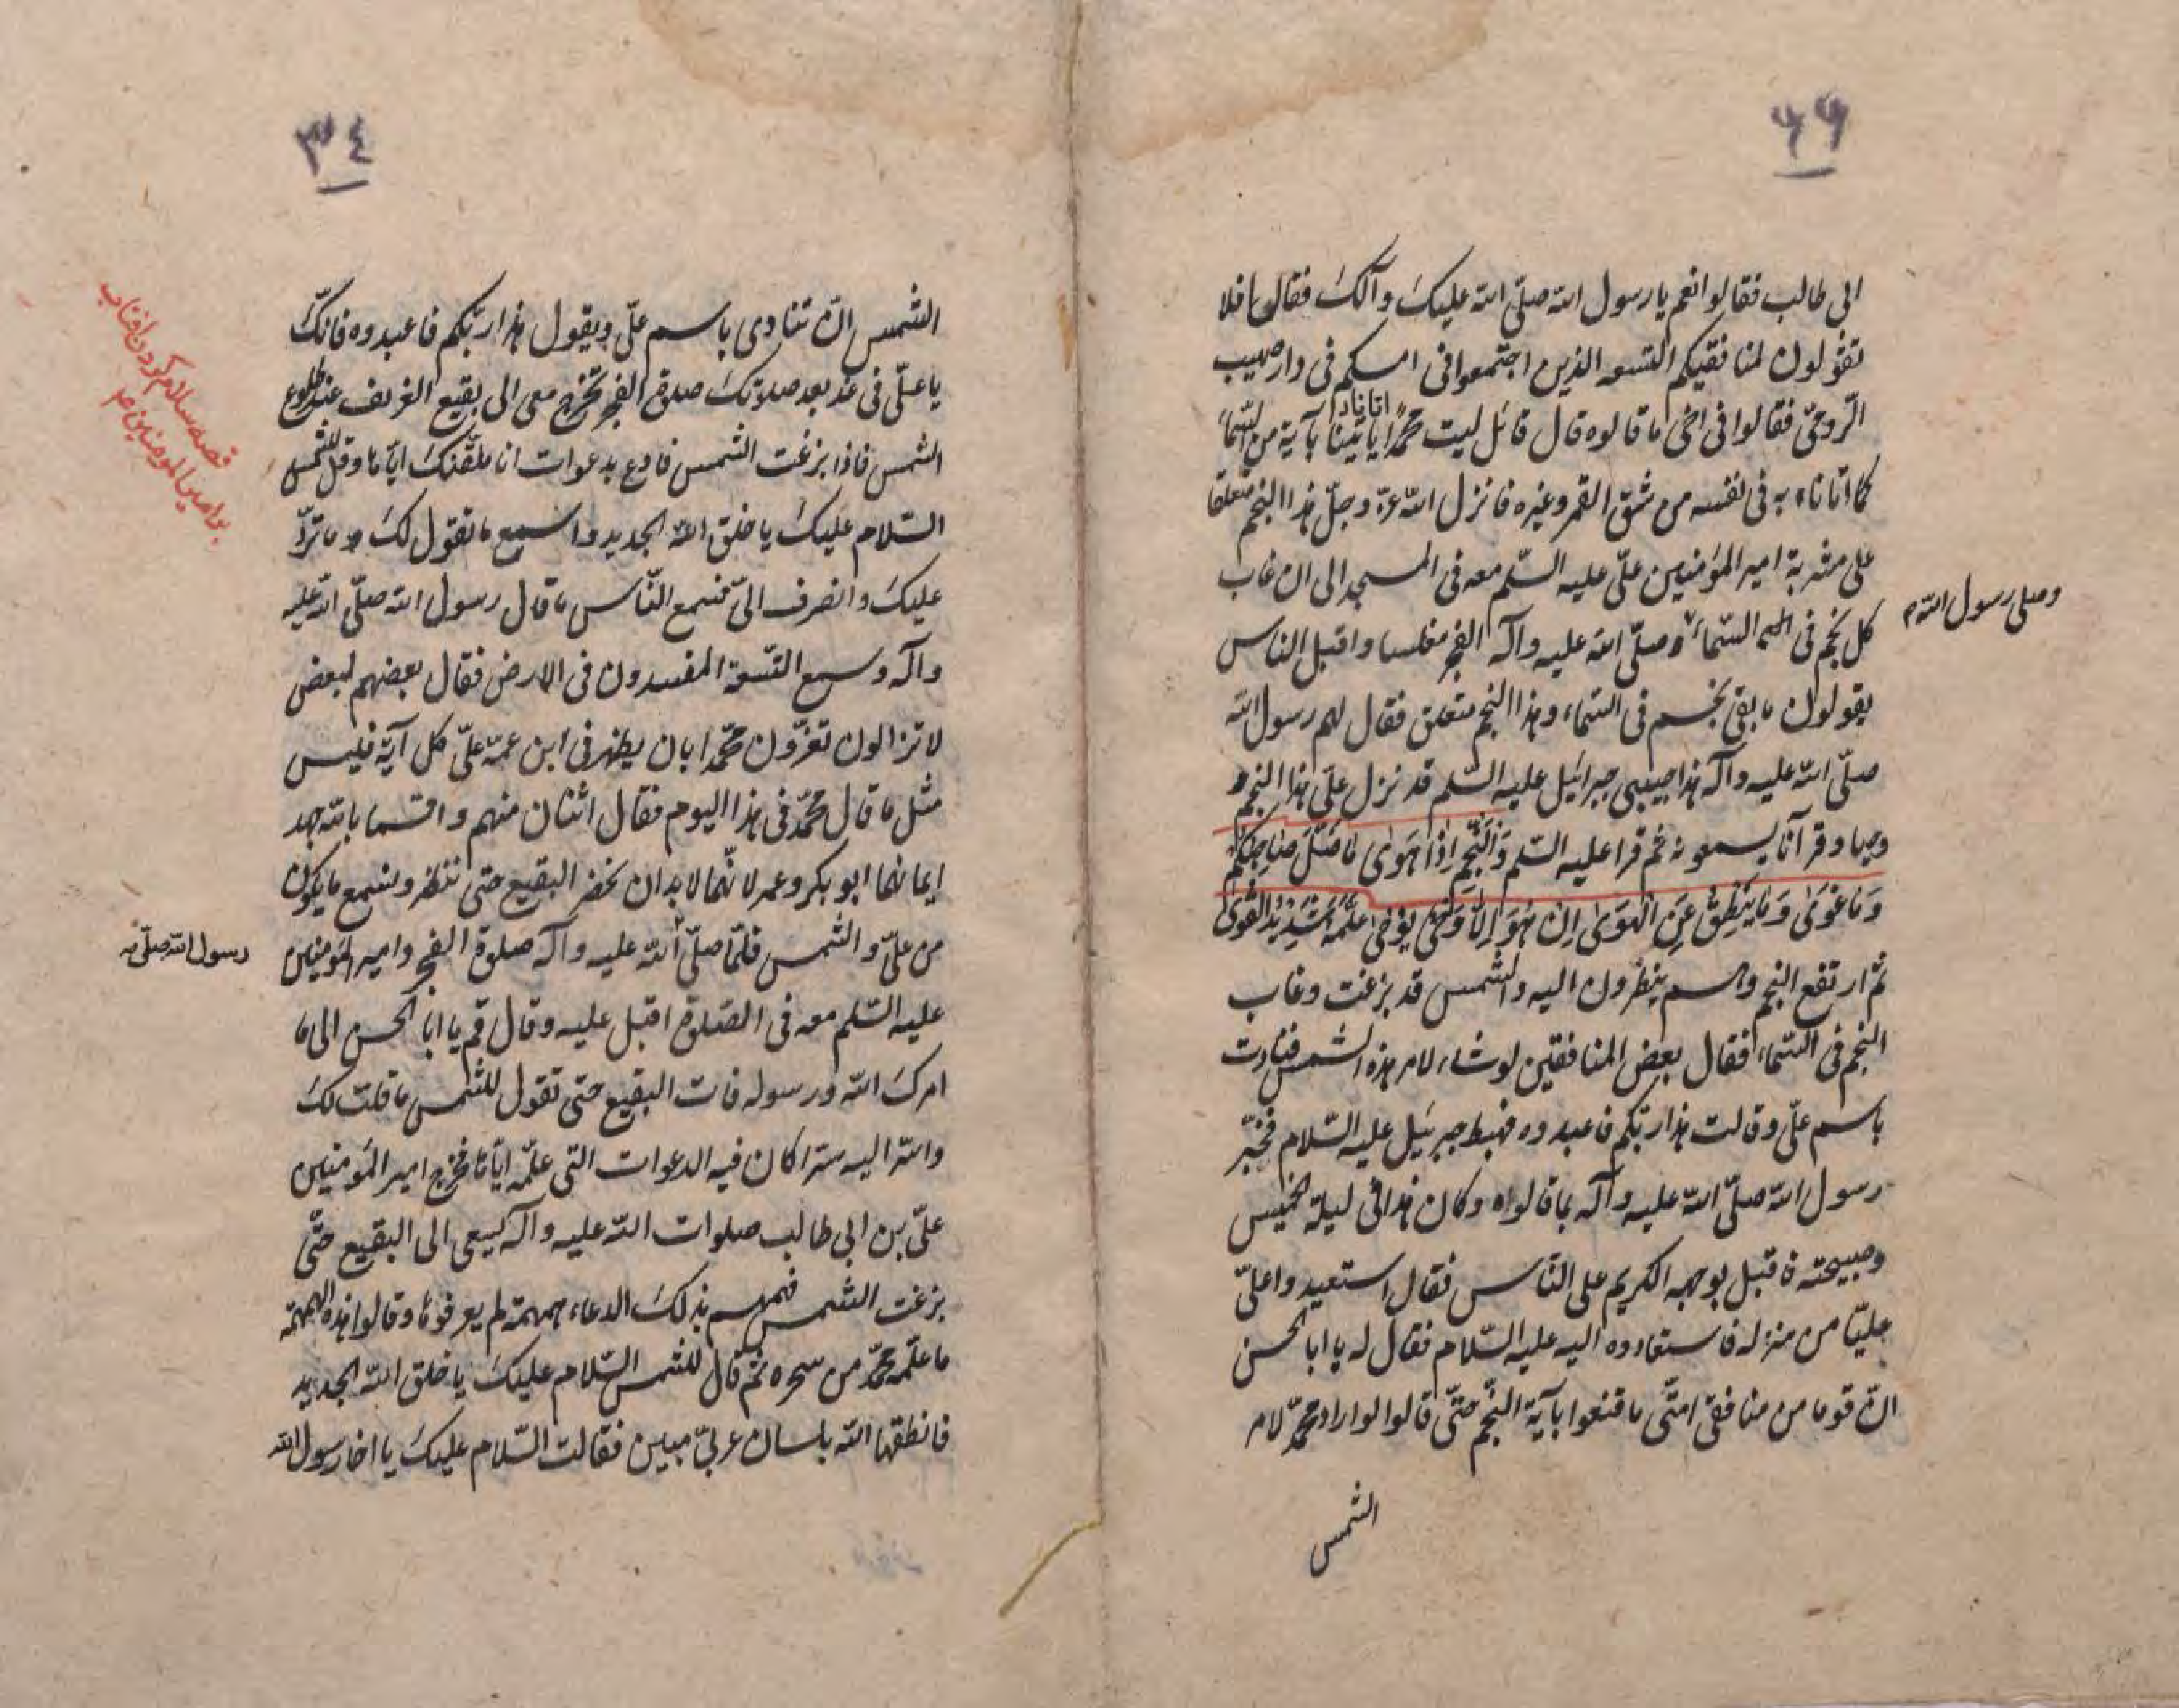 ٦٦
ابى طالب فقالوا نعم يا رسول الله صلّى الله عليك وآلك فقال افلا
تقولون لمنافقيكم التسعه الذين اجتمعوا فى امسكم فى دار صهيب
الرّومىّ فقالوا فى اخى ما قالوه قال قائل ليت محمّدا يأتينا بآية من السّماء
اتانا
كما اتانا به فى نفسه من شقّ القمر وغيره فانزل الله عزّ وجلّ هذا النجم متعلقا
على مشربة امير المؤمنين علىّ عليه السّلم معه فى المسجد الى ان غاب
كل نجم فى السّماء وصلّى الله عليه وآله الفجر مغلسا واقبل الناس
وصلى رسول الله ص
يقولون ما بقى نجم فى السّماء وهذا النجم متعلق فقال لهم رسول الله
صلّى الله عليه وآله هذا حبيبى جبرائيل عليه السّلم قد نزل علىّ هذا النجم
وحيا وقرآنا يسمعونه ثم قرا عليه السّلم وَالنَّجْمِ اِذَا هَوَىٰ مَا ضَلَّ صَاحِبُكُمْ
وَمَا غَوَىٰ وَمَا يَنْطِقُ عَنِ الْهَوَىٰ اِنْ هُوَ اِلَّا وَحْىٌ يُوحَىٰ عَلَّمَهُ شَدِيدُ الْقُوَىٰ
ثم ارتفع النجم وهم ينظرون اليه والشمس قد بزغت وغاب
النجم فى السّماء فقال بعض المنافقين لو شاء لامر هذه الشمس فنادت
باسم علىّ وقالت هذا ربّكم فاعبدوه فهبط جبرئيل عليه السّلام فخبّر
رسول الله صلّى الله عليه وآله بما قالوه وكان هذا فى ليلة الخميس
وصبيحته فاقبل بوجهه الكريم على النّاس فقال استعيدوا علىّ
عليّا من منزله فاستعادوه اليه عليه السّلام فقال له يا ابا الحسن
انّ قوما من منافقى امتى ما قنعوا بآية النّجم حتّى قالوا لو اراد محمّد لامر
الشمس
٣٤
الشّمس ان تنادى باسم علىّ ويقول هذا ربّكم فاعبدوه فانّك
يا علىّ فى غد بعد صلوتك صلوة الفجر تخرج معى الى بقيع الغرقد عند طلوع
الشمس فاذا بزغت الشمس فادع بدعوات انا ملقّنك ايّاها وقل للشمس
السّلام عليك يا خلق الله الجديد واسمع ما تقول لك وما تردّ
عليك وانصرف الىّ فسمع النّاس ما قال رسول الله صلّى الله عليه
وآله وسمع التسعة المفسدون فى الارض فقال بعضهم لبعض
لا تزالون تغرّون محمّدا بان يظهر فى ابن عمّه علىّ كل آية فليس
مثل ما قال محمّد فى هذا اليوم فقال اثنان منهم واقسما بالله جهد
ايمانهما ابو بكر وعمر لانّهما لا بد ان نحضر البقيع حتى ننظر ونسمع ما يكون
من علىّ والشمس فلمّا صلّى الله عليه وآله صلوة الفجر وامير المؤمنين
رسول الله صلّى
عليه السّلم معه فى الصّلوة اقبل عليه وقال قم يا ابا الحسن الى ما
امرك الله ورسوله فات البقيع حتّى تقول للشمس ما قلت لك
واسرّ اليه سرّا كان فيه الدعوات التى علّمه ايّاها فخرج امير المؤمنين
علىّ بن ابى طالب صلوات الله عليه وآله يسعى الى البقيع حتّى
بزغت الشمس فهمهم بذلك الدعاء همهمة لم يعرفوها وقالوا هذه الهمهمة
ما علّمه محمّد من سحره ثم قال للشمس السّلام عليك يا خلق الله الجديد
فانطقها الله بلسان عربىّ مبين فقالت السّلام عليك يا اخا رسول الله
قصه سلام كردن افتاب
بر امير المومنين ع